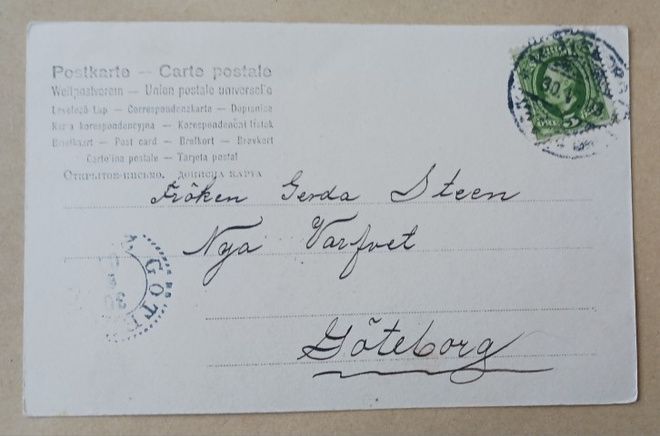 Postkarte — Carte postale
Weltpostverein — Union postale universelle
Levelező Lap — Correspondenzkarte — Dopisnice
Karta korespondencyjna — Korespondenční listek
Briefkaart — Post card — Brefkort — Brevkort
Cartolina postale — Tarjeta postal
Открытое письмо. дописна карта
Fröken Gerda Steen
Nya Varfvet
Göteborg
5
GÖTE
30